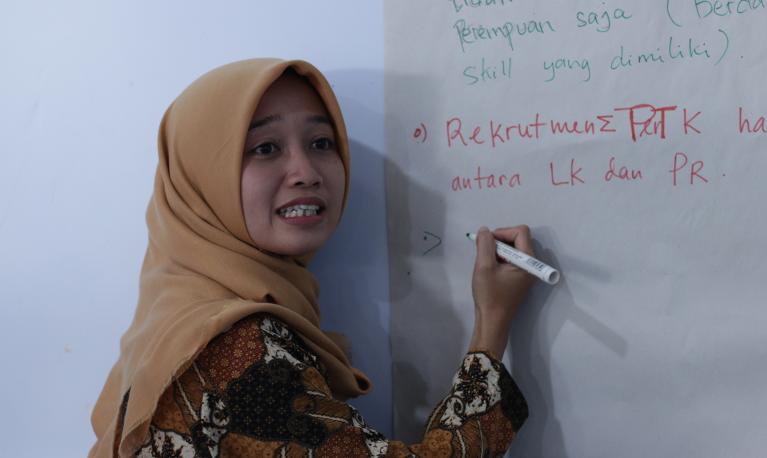 Perempuan saja (
skill yang dimiliki).
o) RekrutmenΣ PerTK ha
antara LK dan PR.
>